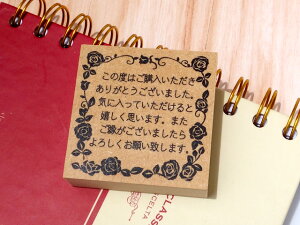 この度はご購入いただき
ありがとうございました。
気に入っていただけると
嬉しく思います。また
ご縁がございましたら
よろしくお願い致します。
CLASS
CELTA